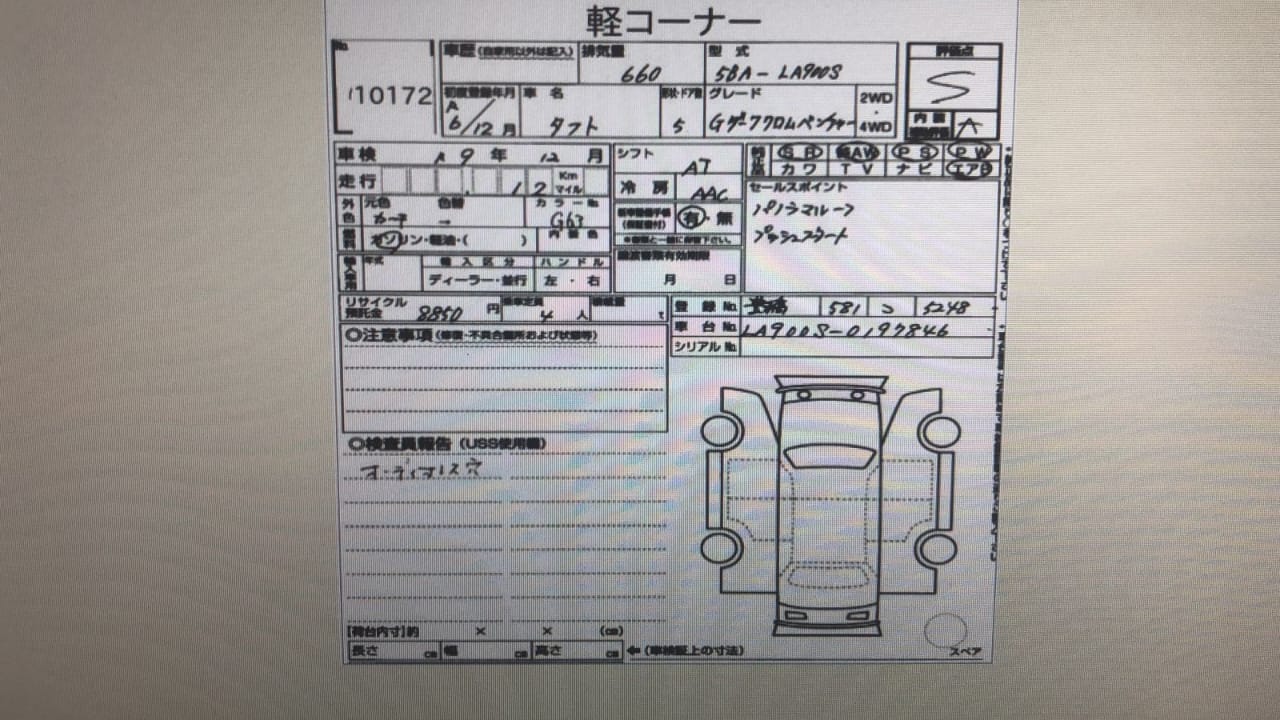 軽コーナー
No. 110172
車歴 (自家用以外は記入)
排気量 660
型式 5BA-LA900S
評価点 S
初度登録年月 R6/12月
車名 タフト
形状・ドア数 5
グレード Gターボクロムベンチャー
2WD・4WD
内装 A
車検 R9年12月
シフト AT
SR AW PS PW
カワ TV ナビ エアB
走行 12 Km マイル
冷房 AAC
セールスポイント
パノラマルーフ
プッシュスタート
外色 元色 カーキ 色替 →
カラーNo. G63
(保証書付) 有・無
燃料 ガソリン・軽油・( )
内装色
※書類と一緒に保管下さい。
譲渡書類有効期限
月 日
輸入車用 年式 輸入区分 ディーラー・並行 ハンドル 左・右
リサイクル預託金 8850円
乗車定員 4人
積載量 t
登録No. 豊橋 581 こ 5248
車台No. LA900S-0197846
シリアルNo.
◎注意事項 (修復・不具合箇所および状態等)
◎検査員報告 (USS使用欄)
オーディオレス穴
【荷台内寸】約 × × (cm)
長さ cm 幅 cm 高さ cm
⇐(車検証上の寸法)
スペア